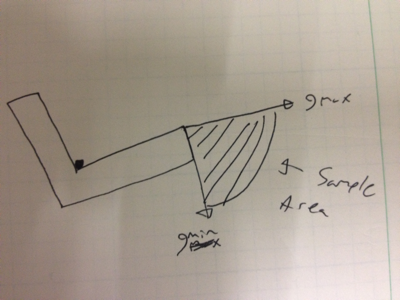 gmax
Sample
Area
gmin